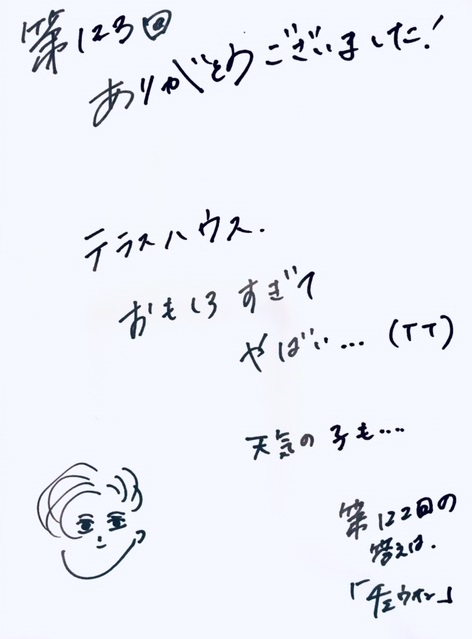 第123回
ありがとうございました!
テラスハウス.
おもしろすぎて
やばい...(TT)
天気の子も....
第122回の
答えは.
「チェウォン」